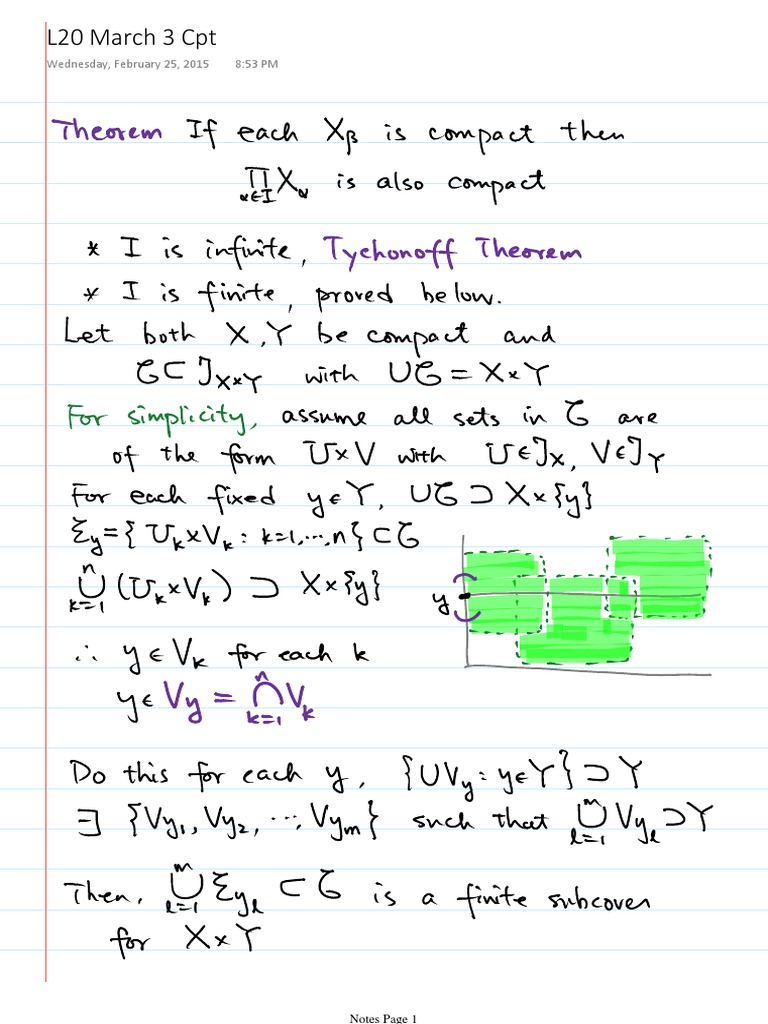 L20 March 3 Cpt
Wednesday, February 25, 2015 8:53 PM
Theorem If each X_β is compact then
∏_{α∈I} X_α is also compact
* I is infinite, Tychonoff Theorem
* I is finite, proved below.
Let both X, Y be compact and
𝒞 ⊂ 𝒥_{X×Y} with ∪𝒞 = X×Y
For simplicity, assume all sets in 𝒞 are
of the form U×V with U∈𝒥_X, V∈𝒥_Y
For each fixed y∈Y, ∪𝒞 ⊃ X×{y}
ℰ_y = {U_k×V_k : k=1,⋯,n} ⊂ 𝒞
∪_{k=1}^{n} (U_k×V_k) ⊃ X×{y}
y
∴ y∈V_k for each k
y∈ V_y = ∩_{k=1}^{n} V_k
Do this for each y, {∪V_y : y∈Y} ⊃ Y
∃ {V_{y_1}, V_{y_2}, ⋯, V_{y_m}} such that ∪_{l=1}^{m} V_{y_l} ⊃ Y
Then, ∪_{l=1}^{m} ℰ_{y_l} ⊂ 𝒞 is a finite subcover
for X×Y
Notes Page 1